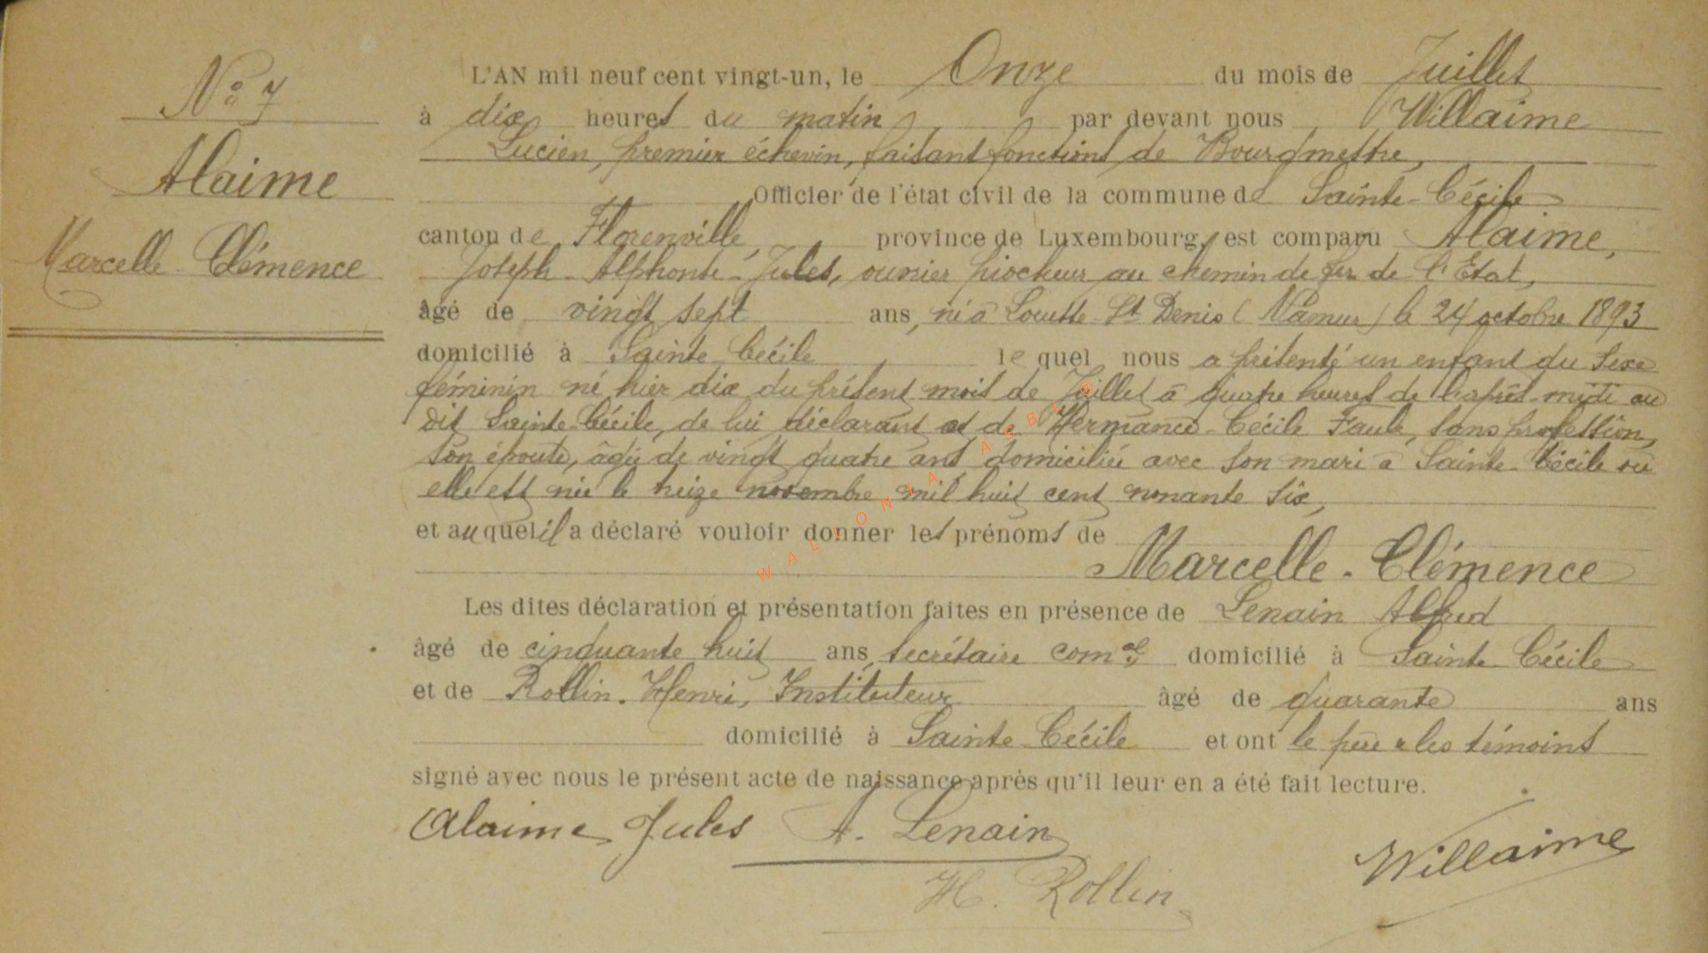 No 7
Alaime
Marcelle Clémence
L'AN mil neuf cent vingt-un, le Onze du mois de Juillet
à dix heures du matin par devant nous Willaime
Lucien, premier échevin, faisant fonctions de Bourgmestre,
Officier de l'état civil de la commune de Sainte-Cécile
canton de Florenville, province de Luxembourg, est comparu Alaime,
Joseph-Alphonse-Jules, ouvrier piocheur au chemin de fer de l'Etat,
âgé de vingt sept ans, né à Louette-St Denis (Namur) le 24 octobre 1893
domicilié à Sainte Cécile, lequel nous a présenté un enfant du sexe
féminin né hier dix du présent mois de Juillet à quatre heures de l'après-midi au
dit Sainte-Cécile, de lui déclarant et de Hermance-Cécile Faule, sans profession,
son épouse, âgée de vingt quatre ans domiciliée avec son mari à Sainte-Cécile où
elle est née le treize novembre mil huit cent nonante six,
et auquel il a déclaré vouloir donner les prénoms de
Marcelle-Clémence
Les dites déclaration et présentation faites en présence de Lenain Alfred
âgé de cinquante huit ans, secrétaire comal, domicilié à Sainte Cécile
et de Rollin Henri, Instituteur âgé de quarante ans
domicilié à Sainte Cécile et ont le père & les témoins
signé avec nous le présent acte de naissance après qu'il leur en a été fait lecture.
Alaime Jules A. Lenain
Willaime
H. Rollin
WALLONIA ASBL ©